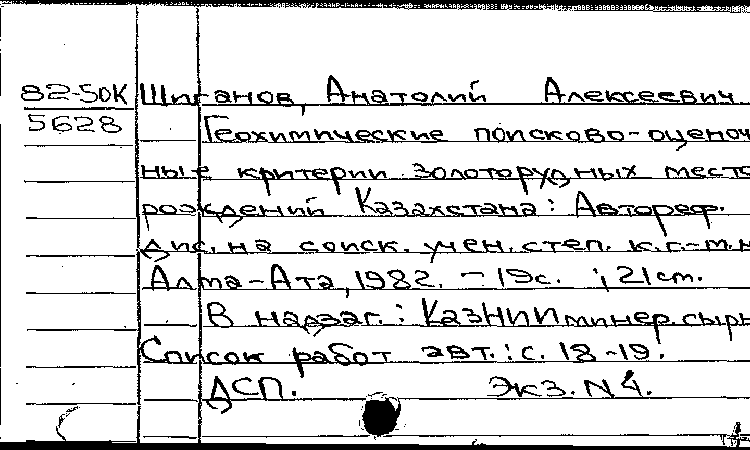 82-50К Шиганов, Анатолий Алексеевич
5628 Геохимические поисково-оценоч
ные критерии золоторудных место
рождений Казахстана: Автореф.
дис. на соиск. учен. степ. к.г.-м.н
Алма-Ата, 1982. - 19с. ; 21см.
В надзаг.: КазНИИминер.сырь
Список работ авт.: с. 18-19.
ДСП. Экз. N 4.